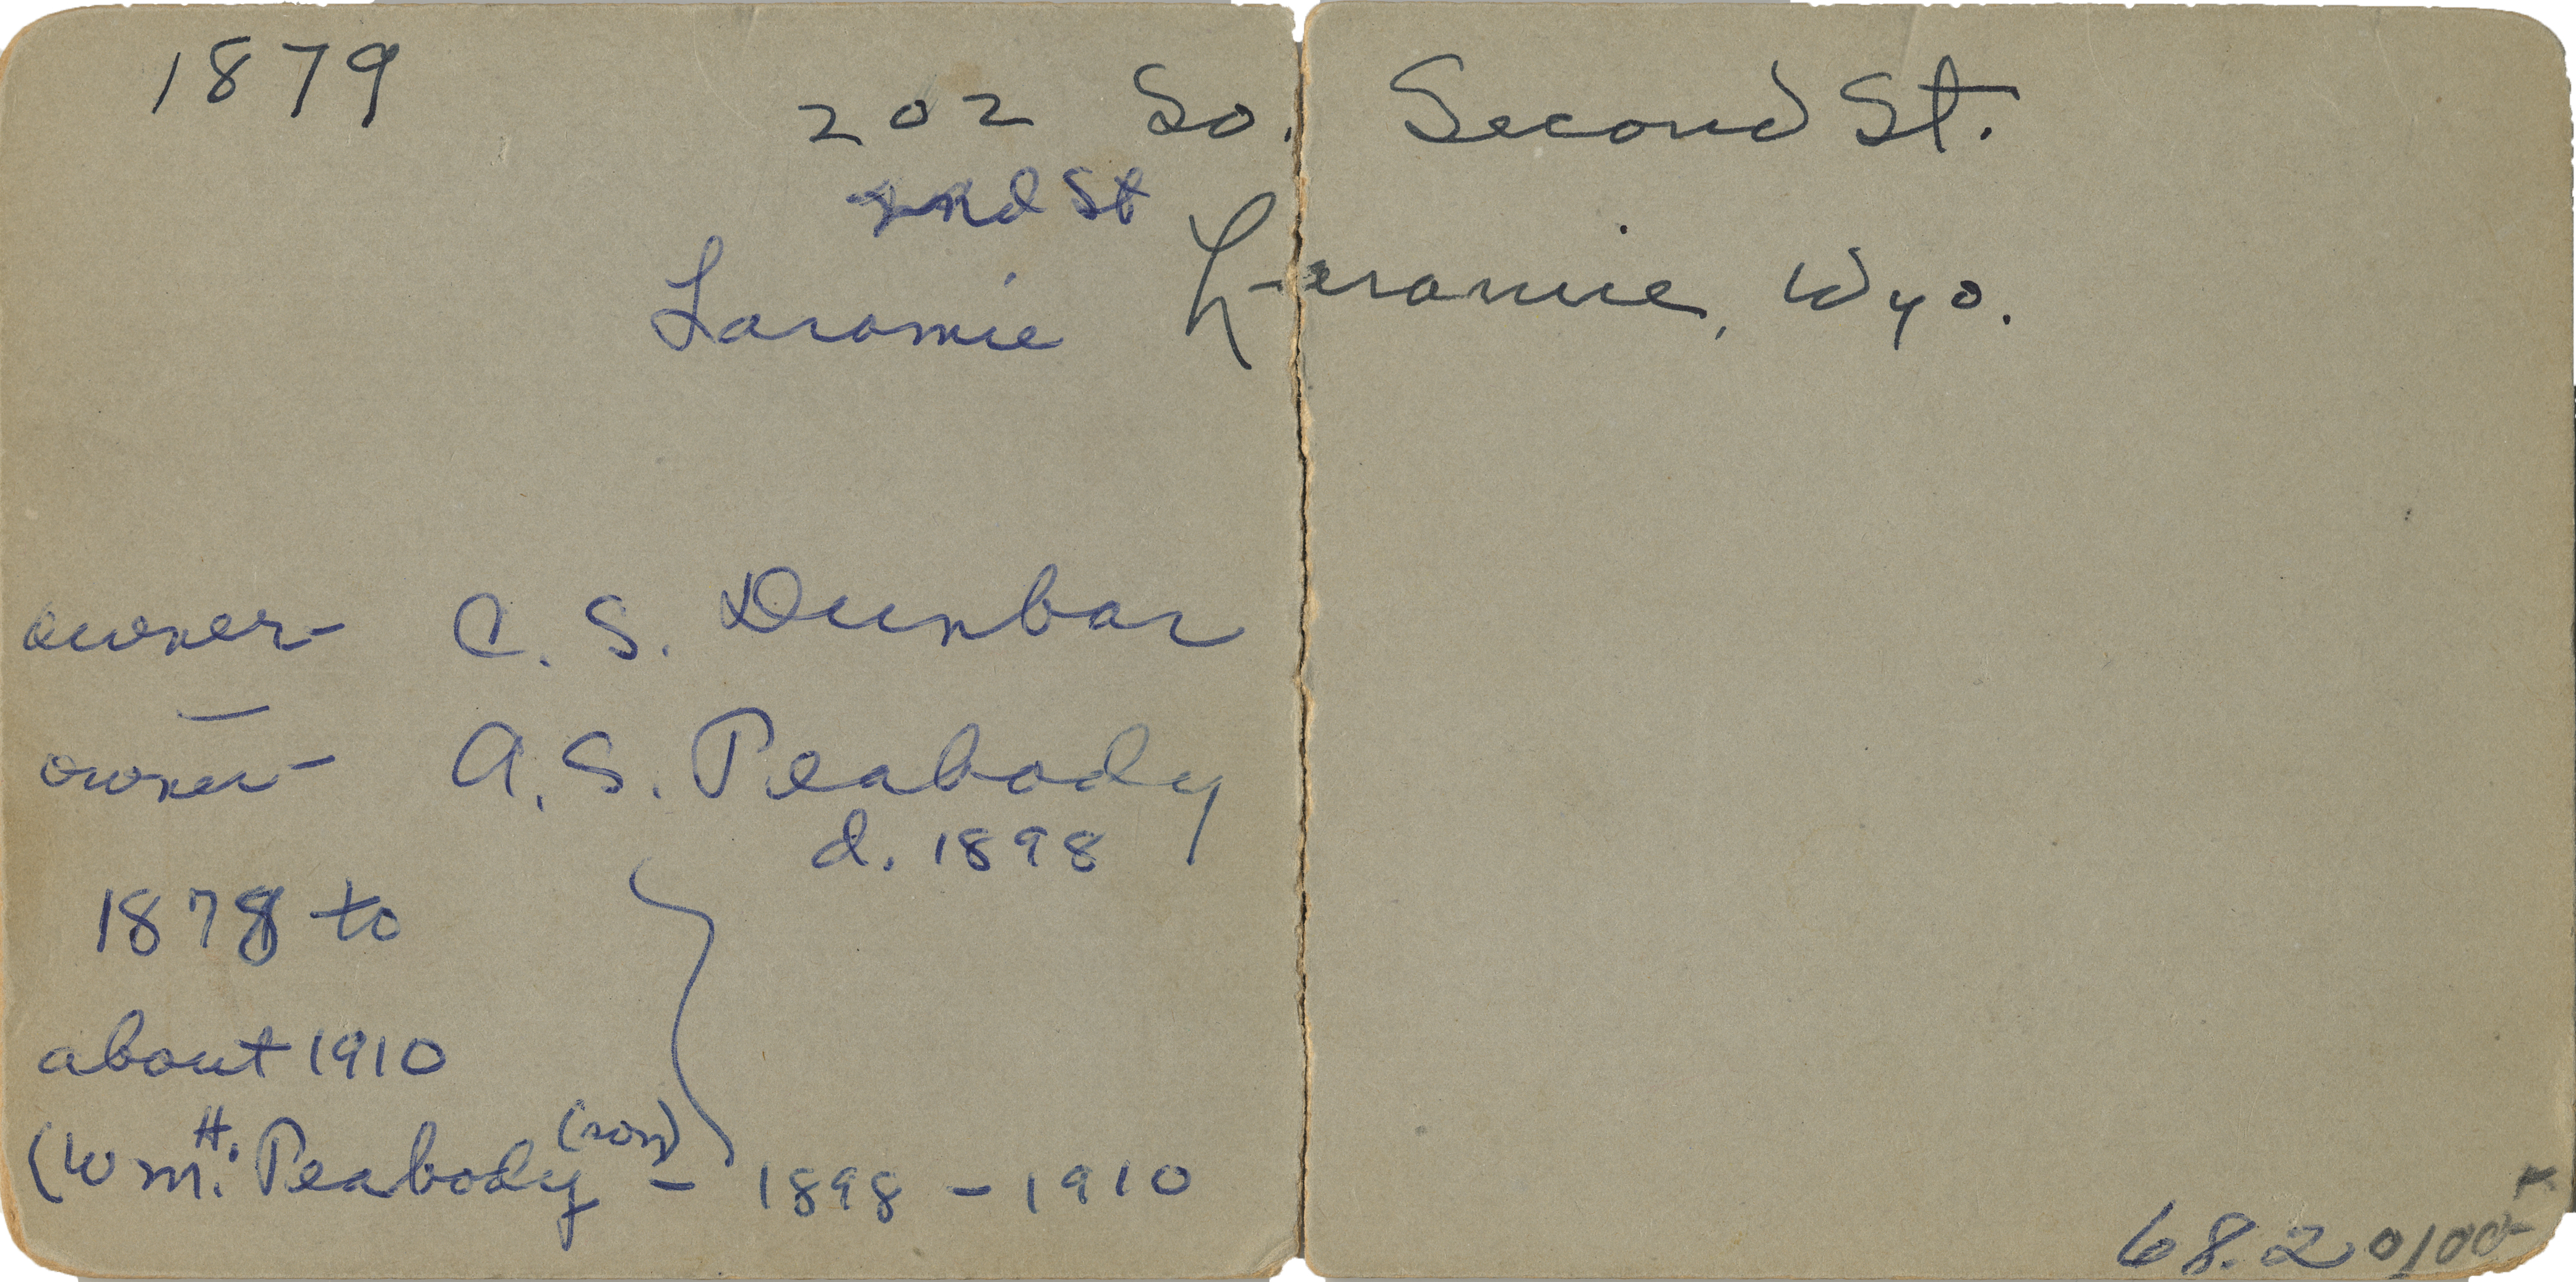 1879
202 So. Second St.
2nd St
Laramie Laramie, Wyo.
owner- C. S. Dunbar
owner- A. S. Peabody
d. 1898
1878 to
about 1910
(Wm. H. Peabody (son) - 1898 - 1910
68.2